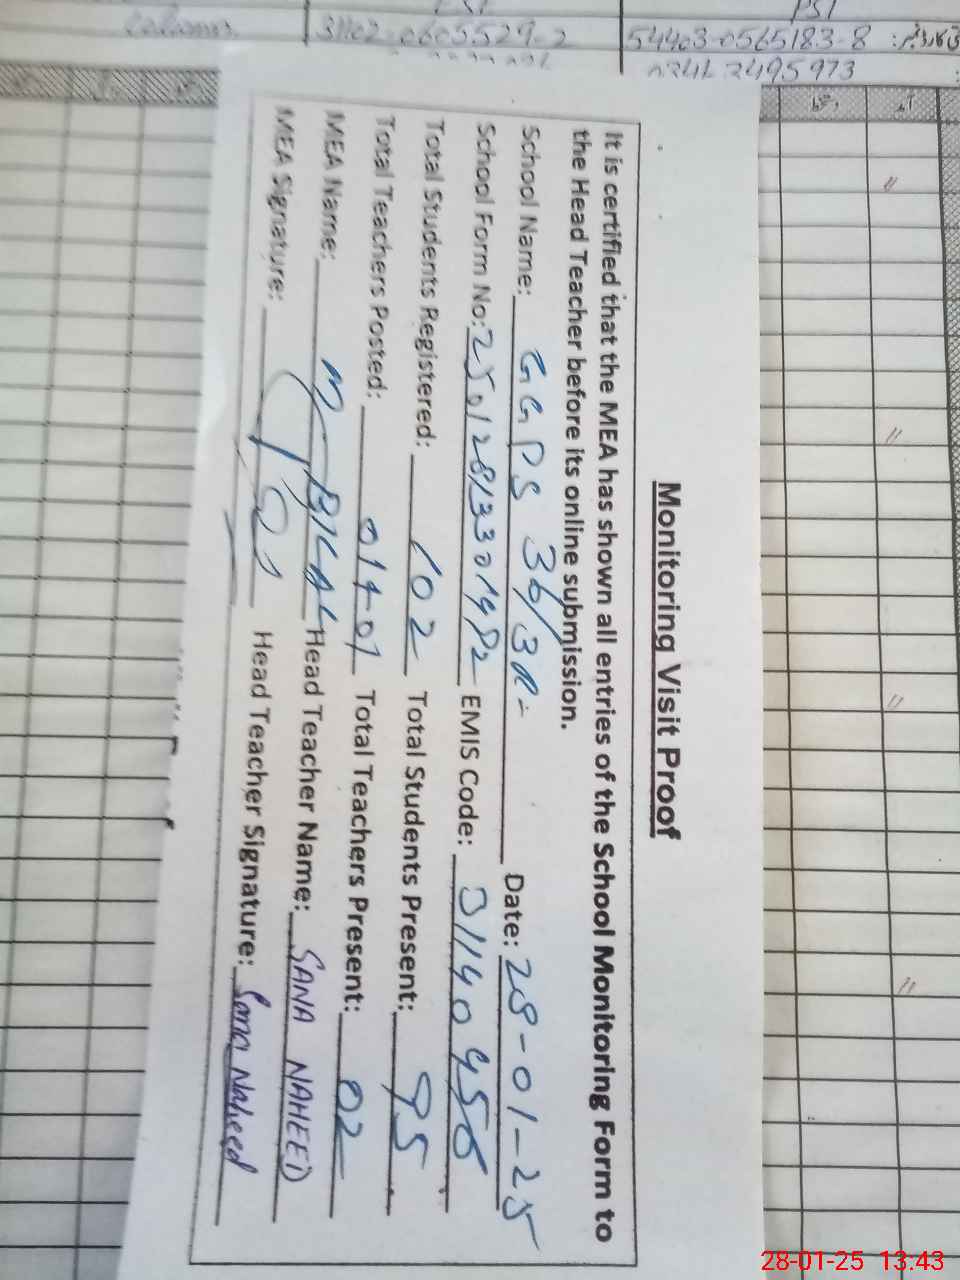 PST
31102-0605529-2
54403-0565183-8
2495973
Monitoring Visit Proof
It is certified that the MEA has shown all entries of the School Monitoring Form to
the Head Teacher before its online submission.
School Name: GGPS 36/3R- Date: 28-01-25
School Form No: EMIS Code:
Total Students Registered: 102 Total Students Present: 95
Total Teachers Posted: 01+01 Total Teachers Present: 02
MEA Name: M BILAL Head Teacher Name: SANA NAHEED
MEA Signature: Head Teacher Signature: Sana Naheed
28-01-25 13:43